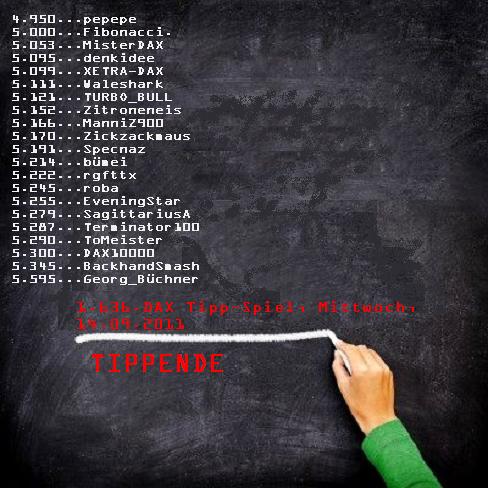 4.950...pepepe
5.000...Fibonacci.
5.053...MisterDAX
5.095...denkidee
5.099...XETRA-DAX
5.111...Waleshark
5.121...TURBO_BULL
5.152...Zitroneneis
5.166...ManniZ900
5.170...Zickzackmaus
5.191...Specnaz
5.214...bümei
5.222...rgfttx
5.245...roba
5.255...EveningStar
5.279...SagittariusA
5.287...Terminator100
5.290...ToMeister
5.300...DAX10000
5.345...BackhandSmash
5.595...Georg_Büchner
1.636.DAX Tipp-Spiel, Mittwoch,
14.09.2011
TIPPENDE